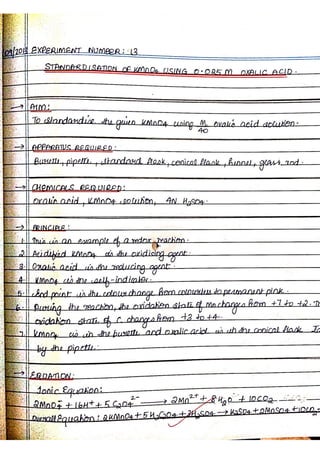 09/2018 EXPERIMENT NUMBER: 13
STANDARDISATION OF KMnO4 USING 0.025 M OXALIC ACID.
→ AIM:
To standardise the given KMnO4 using M/40 oxalic acid solution.
→ APPARATUS REQUIRED:
Burette, pipette, standard flask, conical flask, funnel, glass rod.
→ CHEMICALS REQUIRED:
Oxalic acid, KMnO4 solution, 4N H2SO4.
→ PRINCIPLE:
1. This is an example of a redox reaction.
2. Acidified KMnO4 is the oxidising agent.
3. Oxalic acid is the reducing agent.
4. KMnO4 is the self-indicator.
5. End point is the colour change from colourless to permanent pink.
6. During the reaction, the oxidation state of Mn changes from +7 to +2.
oxidation state of C changes from +3 to +4.
7. KMnO4 is in the burette and oxalic acid is in the conical flask
by the pipette.
→ EQUATION:
Ionic Equation:
2MnO4⁻ + 16H⁺ + 5C2O4²⁻ → 2Mn²⁺ + 8H2O + 10CO2
Overall Equation: 2KMnO4 + 5H2C2O4 + 3H2SO4 → K2SO4 + 2MnSO4 + 10CO2